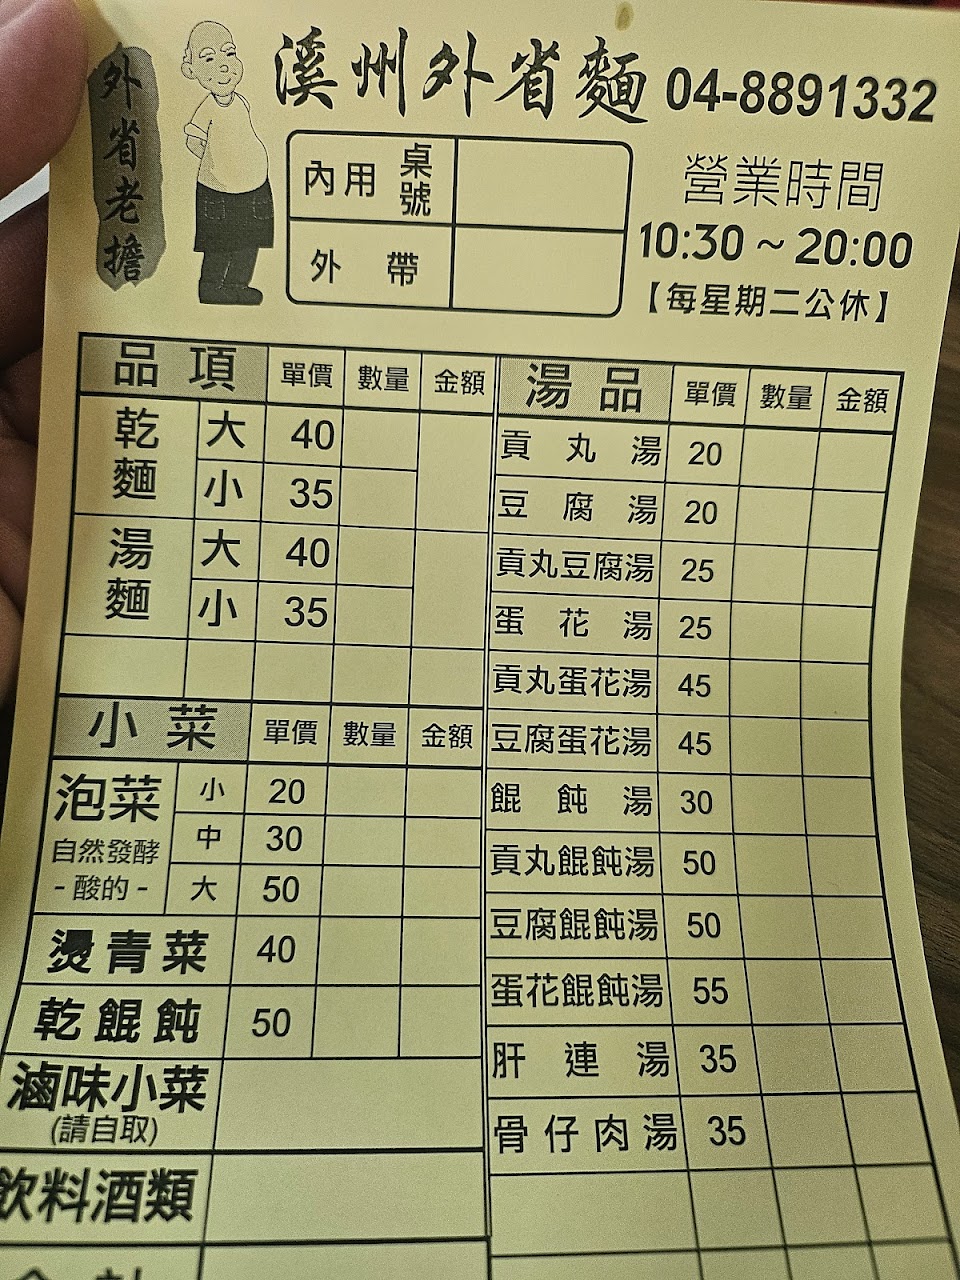 外省老擔
溪州外省麵 04-8891332
內用 桌號
外帶
營業時間
10:30 ~ 20:00
【每星期二公休】
品項 單價 數量 金額
乾麵 大 40
小 35
湯麵 大 40
小 35
小菜 單價 數量 金額
泡菜 小 20
自然發酵 中 30
- 酸的 - 大 50
燙青菜 40
乾餛飩 50
滷味小菜
(請自取)
飲料酒類
湯品 單價 數量 金額
貢丸湯 20
豆腐湯 20
貢丸豆腐湯 25
蛋花湯 25
貢丸蛋花湯 45
豆腐蛋花湯 45
餛飩湯 30
貢丸餛飩湯 50
豆腐餛飩湯 50
蛋花餛飩湯 55
肝連湯 35
骨仔肉湯 35